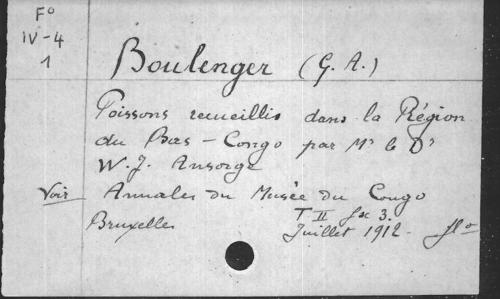 Fº
IV-4
1
Boulenger (G. A.)
Poissons recueillis dans la Région
du Bas-Congo par Mr le Dr
W. J. Ansorge
Voir Annales du Musée du Congo
T II fsc 3.
Bruxelles Juillet 1912- flº